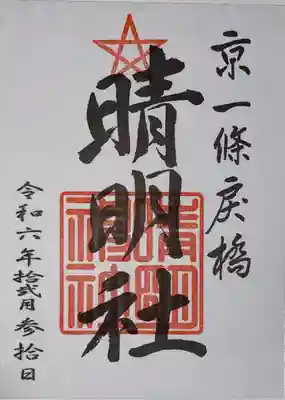 京一條戻橋
晴明社
晴明神社
令和六年拾弐月参拾日